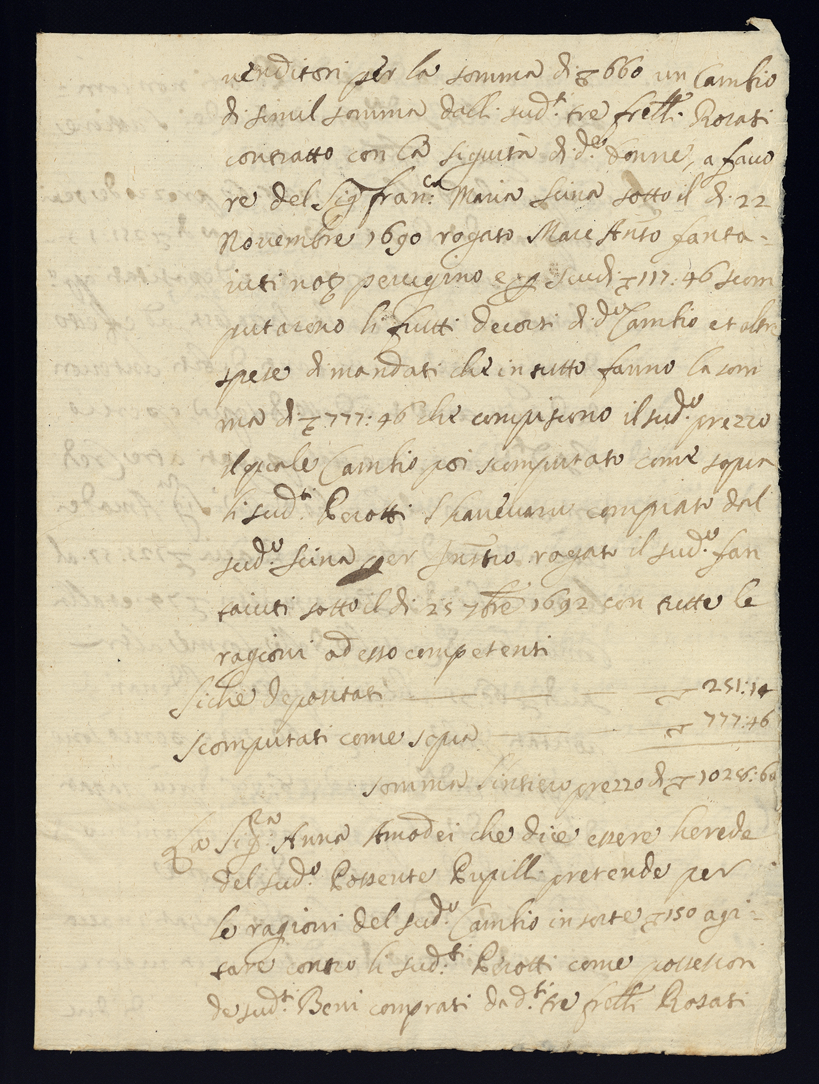 venditori per la somma di ꝟ 660 un Cambio
di simil somma dalli sud.ti tre frelli Rosati
contratto con la sigurtà di d.e donne, a favo
re del Sig fran.co Maria Scina sotto il dì 22
Novembre 1690 rogato Marc Anto fanta=
iuti not perugino e p scudi 117:46 scom
putarono li frutti decorsi di d.o Cambio et altre
spese di mandati che in tutto fanno la som
ma di 777:46 che compiscono il sud.o prezzo
il quale Cambio poi scomputato come sopra
li sud.ti Perotti l'havevano comprato dal
sud.o Scina per Instro rogato il sud.o fan
taiuti sotto il dì 25 7bre 1692 con tutte le
ragioni ad esso competenti
Siche depositati 251:14
scomputati come sopra 777:46
somma l'intiero prezzo di 1028:60
La Sig.ra Anna Amodei che dice essere herede
del sud.o Possente Pupilli pretende per
le ragioni del sud.o Cambio in sorte 150 agi=
tare contro li sud.ti Perotti come possessori
de sud.ti Beni comprati da d.ti tre frelli Rosati